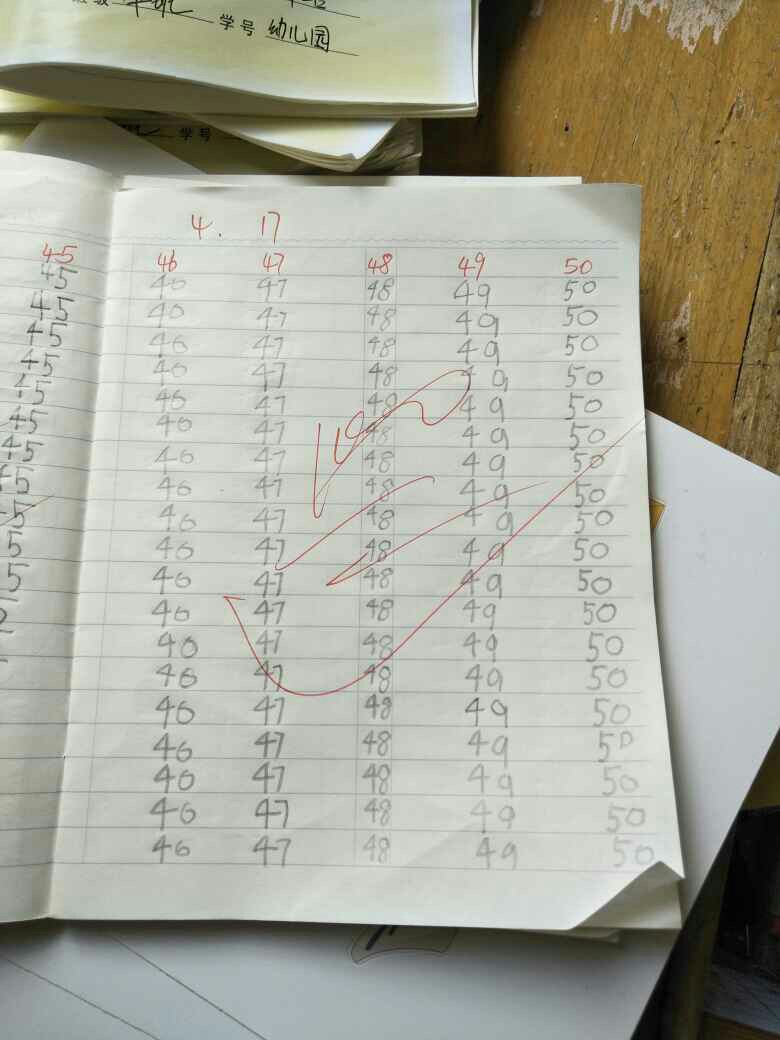 学号 幼儿园
学号
4. 17
45 46 47 48 49 50
45 46 47 48 49 50
45 40 47 48 49 50
45 46 47 48 49 50
45 46 47 48 49 50
45 46 47 48 49 50
45 46 47 48 49 50
45 46 47 48 49 50
5 46 47 48 49 50
5 46 47 48 49 50
5 46 47 48 49 50
5 46 47 48 49 50
46 47 48 49 50
40 47 48 49 50
46 47 48 49 50
46 47 48 49 50
46 47 48 49 50
40 47 48 49 50
46 47 48 49 50
46 47 48 49 50